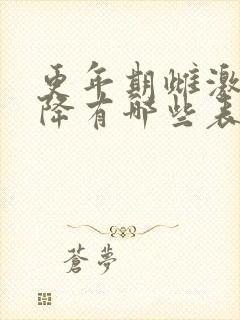 更年期雌激
降有哪些表
蒼夢